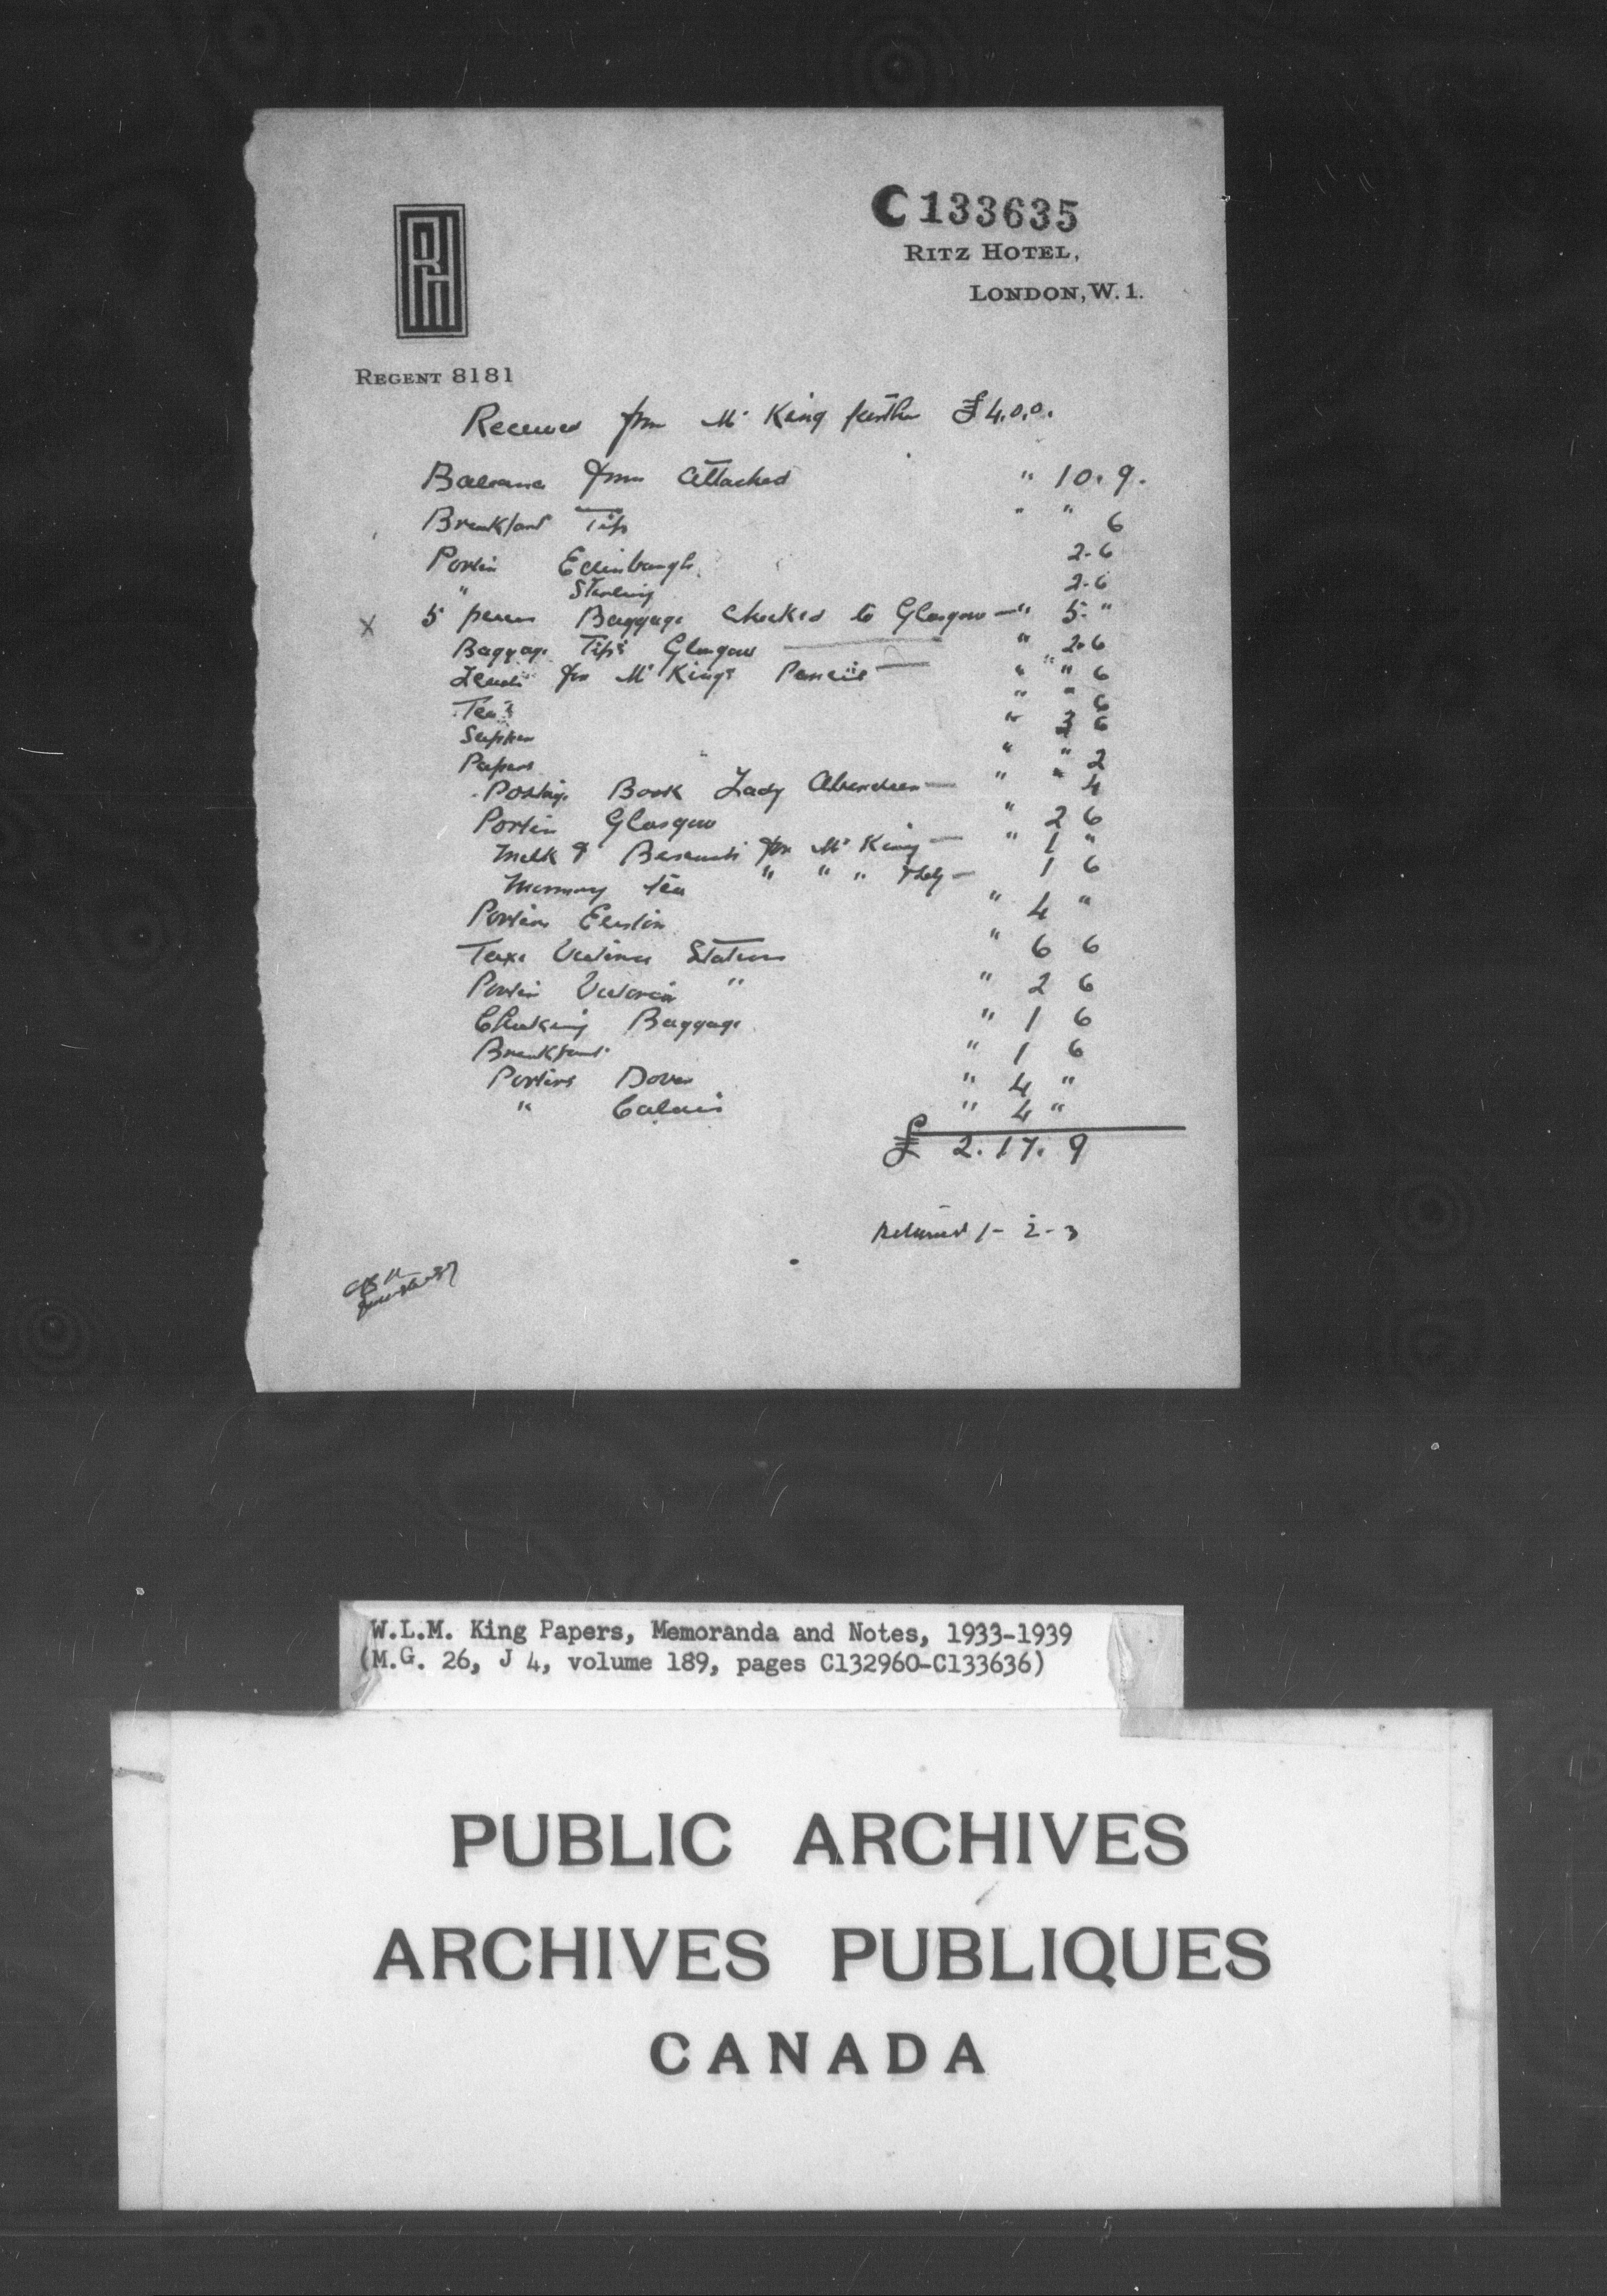 C 133635
RITZ HOTEL,
LONDON, W. 1.
REGENT 8181
Received from Mr King further £ 4.0.0.
Balance from attached " 10. 9.
Breakfast Tip " " 6
Porter Edinburgh 2-6
" Sterling 2-6
X 5 pieces Baggage checked to Glasgow — " 5. "
Baggage Tips Glasgow — " 2-6
Leads for Mr King's Pencils — " " 6
Teas " " 6
Supper " 3 6
Papers " " 2
Postage Book Lady Aberdeen — " " 4
Porter Glasgow " 2 6
Milk & Biscuits for Mr King — " 1 "
Morning tea " " " — 1 6
Porters Euston " 4 "
Taxi Victoria Station " 6 6
Porter Victoria " " 2 6
Checking Baggage " 1 6
Breakfast " 1 6
Porters Dover " 4 "
" Calais " 4 "
£ 2. 17. 9
Returned 1 - 2 - 3
W.L.M. King Papers, Memoranda and Notes, 1933-1939
(M.G. 26, J 4, volume 189, pages C132960-C133636)
PUBLIC ARCHIVES
ARCHIVES PUBLIQUES
CANADA